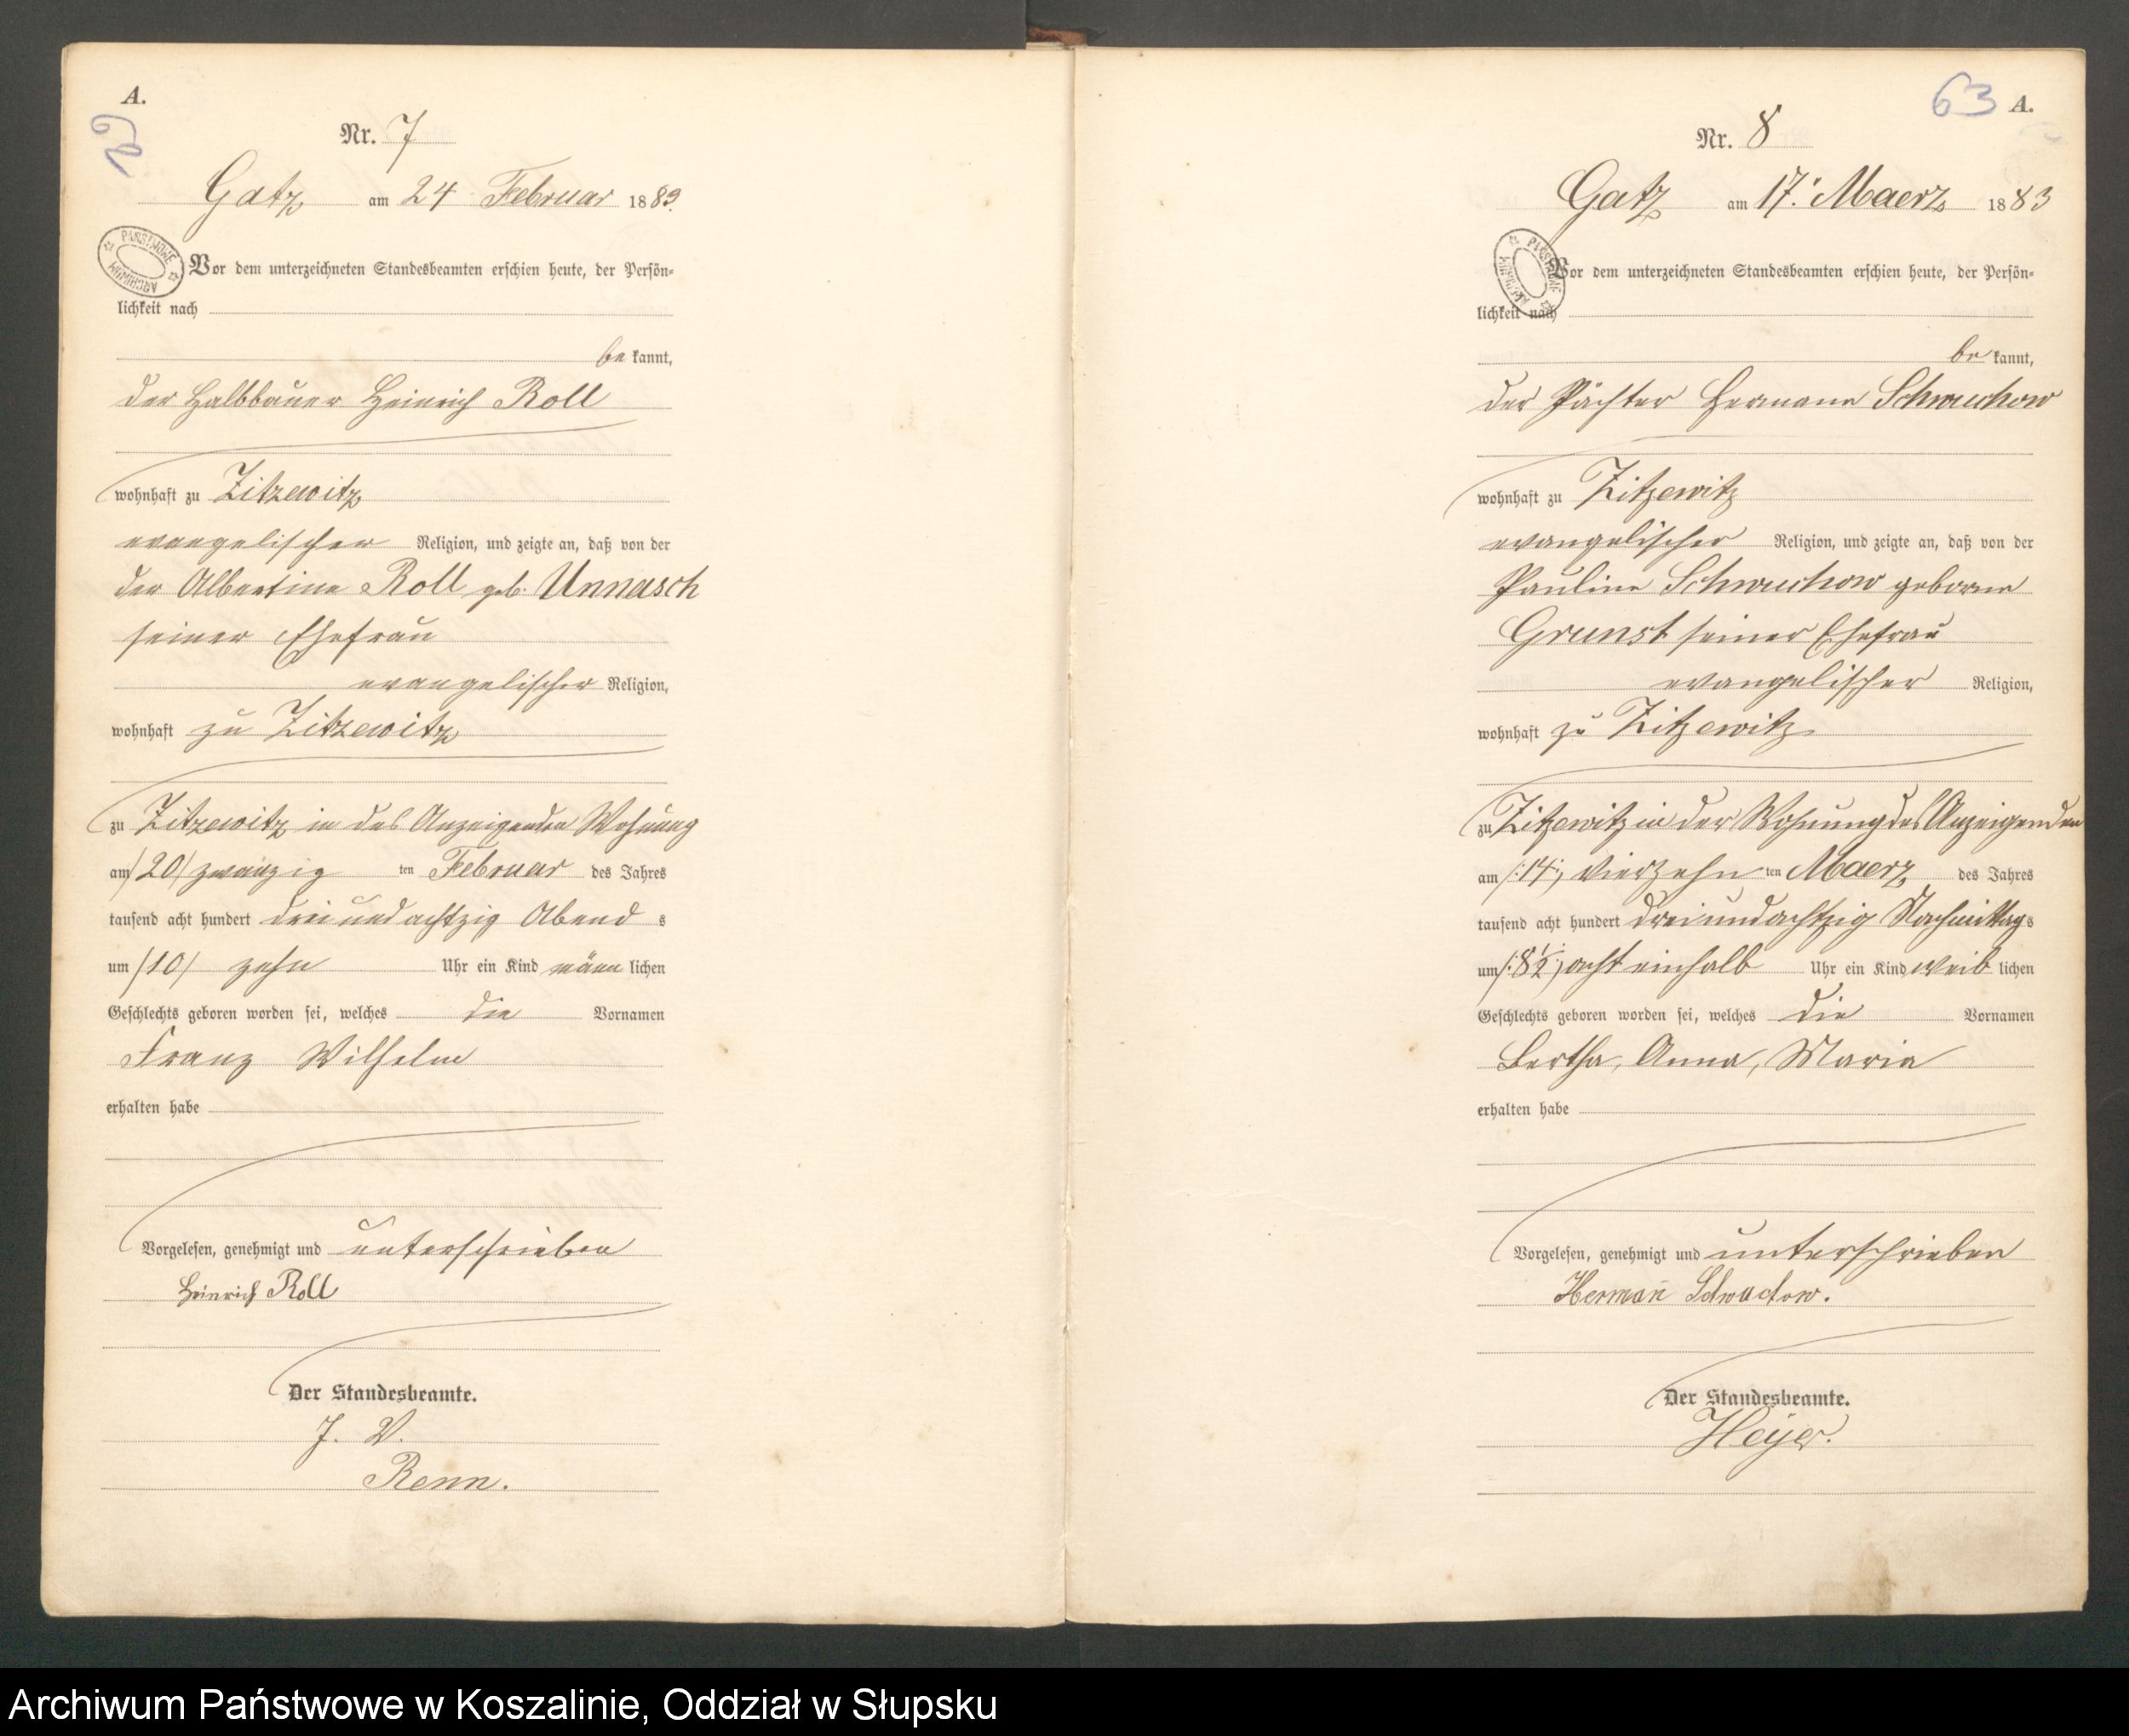 A.
62
Nr. 7
Gatz am 24 Februar 1883.
PAŃSTWOWE ARCHIWUM
Vor dem unterzeichneten Standesbeamten erschien heute, der Persön-
lichkeit nach
be kannt,
der Halbbauer Heinrich Roll
wohnhaft zu Zitzewitz
evangelischer Religion, und zeigte an, daß von der
der Albertine Roll geb. Unnasch
seiner Ehefrau
evangelischer Religion,
wohnhaft zu Zitzewitz
zu Zitzewitz in des Anzeigenden Wohnung
am /20/ zwanzig ten Februar des Jahres
tausend acht hundert dreiundachtzig Abend s
um /10/ zehn Uhr ein Kind männ lichen
Geschlechts geboren worden sei, welches die Vornamen
Franz Wilhelm
erhalten habe
Vorgelesen, genehmigt und unterschrieben
Heinrich Roll
Der Standesbeamte.
J. V.
Renn.
63 A.
Nr. 8
Gatz am 17. Maerz 1883
PAŃSTWOWE ARCHIWUM
Vor dem unterzeichneten Standesbeamten erschien heute, der Persön-
lichkeit nach
be kannt,
der Pächter Hermann Schwuchow
wohnhaft zu Zitzewitz
evangelischer Religion, und zeigte an, daß von der
Pauline Schwuchow geborne
Grunst seiner Ehefrau
evangelischer Religion,
wohnhaft zu Zitzewitz
zu Zitzewitz in der Wohnung des Anzeigenden
am /:14:/ vierzehn ten Maerz des Jahres
tausend acht hundert dreiundachtzig Nachmittag s
um /:8½:/ acht einhalb Uhr ein Kind weib lichen
Geschlechts geboren worden sei, welches die Vornamen
Bertha, Anna, Maria
erhalten habe
Vorgelesen, genehmigt und unterschrieben
Herman̄ Schwuchow.
Der Standesbeamte.
Heyer.
Archiwum Państwowe w Koszalinie, Oddział w Słupsku